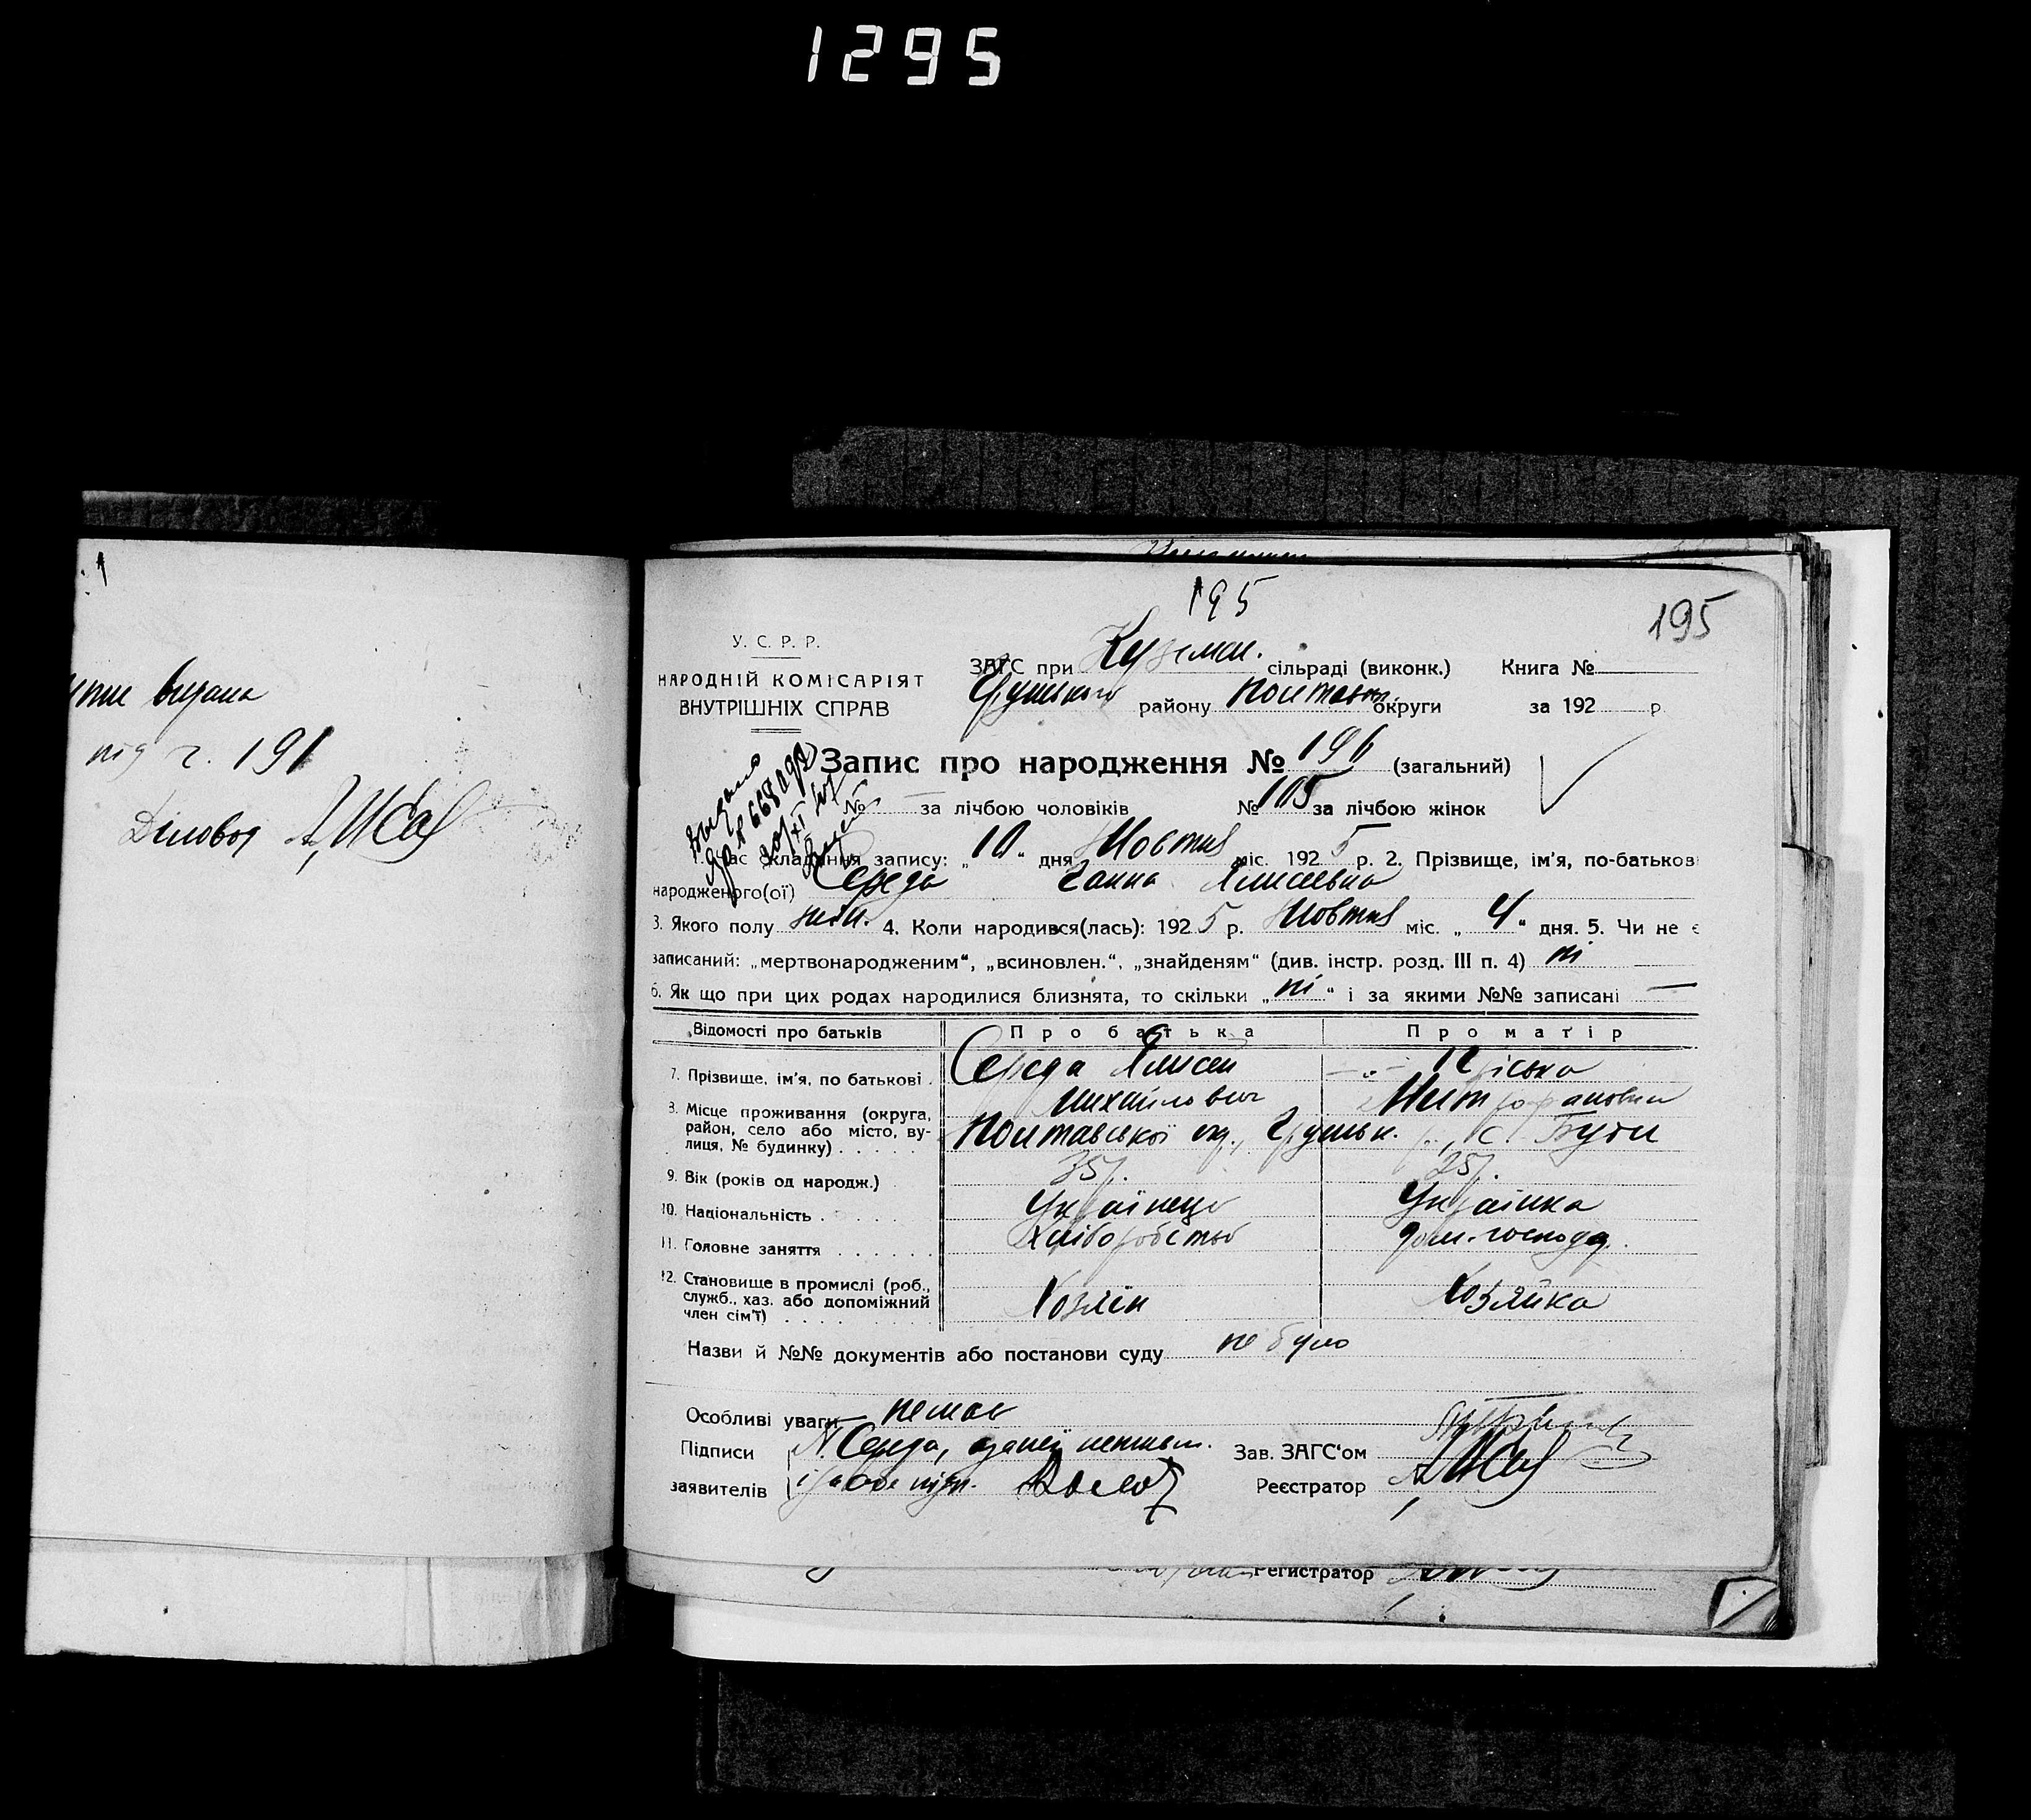 1295
видана
під г. 191
Діловод
195
195
У. С. Р. Р.
НАРОДНІЙ КОМІСАРІЯТ
ВНУТРІШНІХ СПРАВ
ЗАГС при Куземен. сільраді (виконк.) Книга №
Грунського району Полтавськ. округи за 192 р.
Запис про народження № 196 (загальний)
№ — за лічбою чоловіків № 105 за лічбою жінок
складання запису: „10“ дня Жовтня міс. 1925 р. 2. Прізвище, ім'я, по-батькові
народженого(ої) Середа Ганна Ялисеевна
3. Якого полу жін. 4. Коли народився(лась): 1925 р. Жовтня міс. „4“ дня. 5. Чи не є
записаний: „мертвонародженим“, „всиновлен.“, „знайденям“ (див. інстр. розд. III п. 4) ні
6. Як що при цих родах народилися близнята, то скільки „ні“ і за якими №№ записані —
Відомості про батьків Про батька Про матір
7. Прізвище, ім'я, по батькові Середа Ялисей — „ — Пріська
Михайлович Митрофановна
8. Місце проживання (округа,
район, село або місто, вулиця, № будинку) Полтавської окр., Грунськ. р., с. Буги
9. Вік (років од народж.) 35 р. 25 р.
10. Національність Українець Українка
11. Головне заняття Хліборобство дом. господ.
12. Становище в промислі (роб.,
служб., хаз. або допоміжний
член сім'ї) Хозяїн Хозяйка
Назви й №№ документів або постанови суду не було
Особливі уваги немає
Підписи Середа, Зав. ЗАГС'ом
заявителів Реєстратор
Регистратор